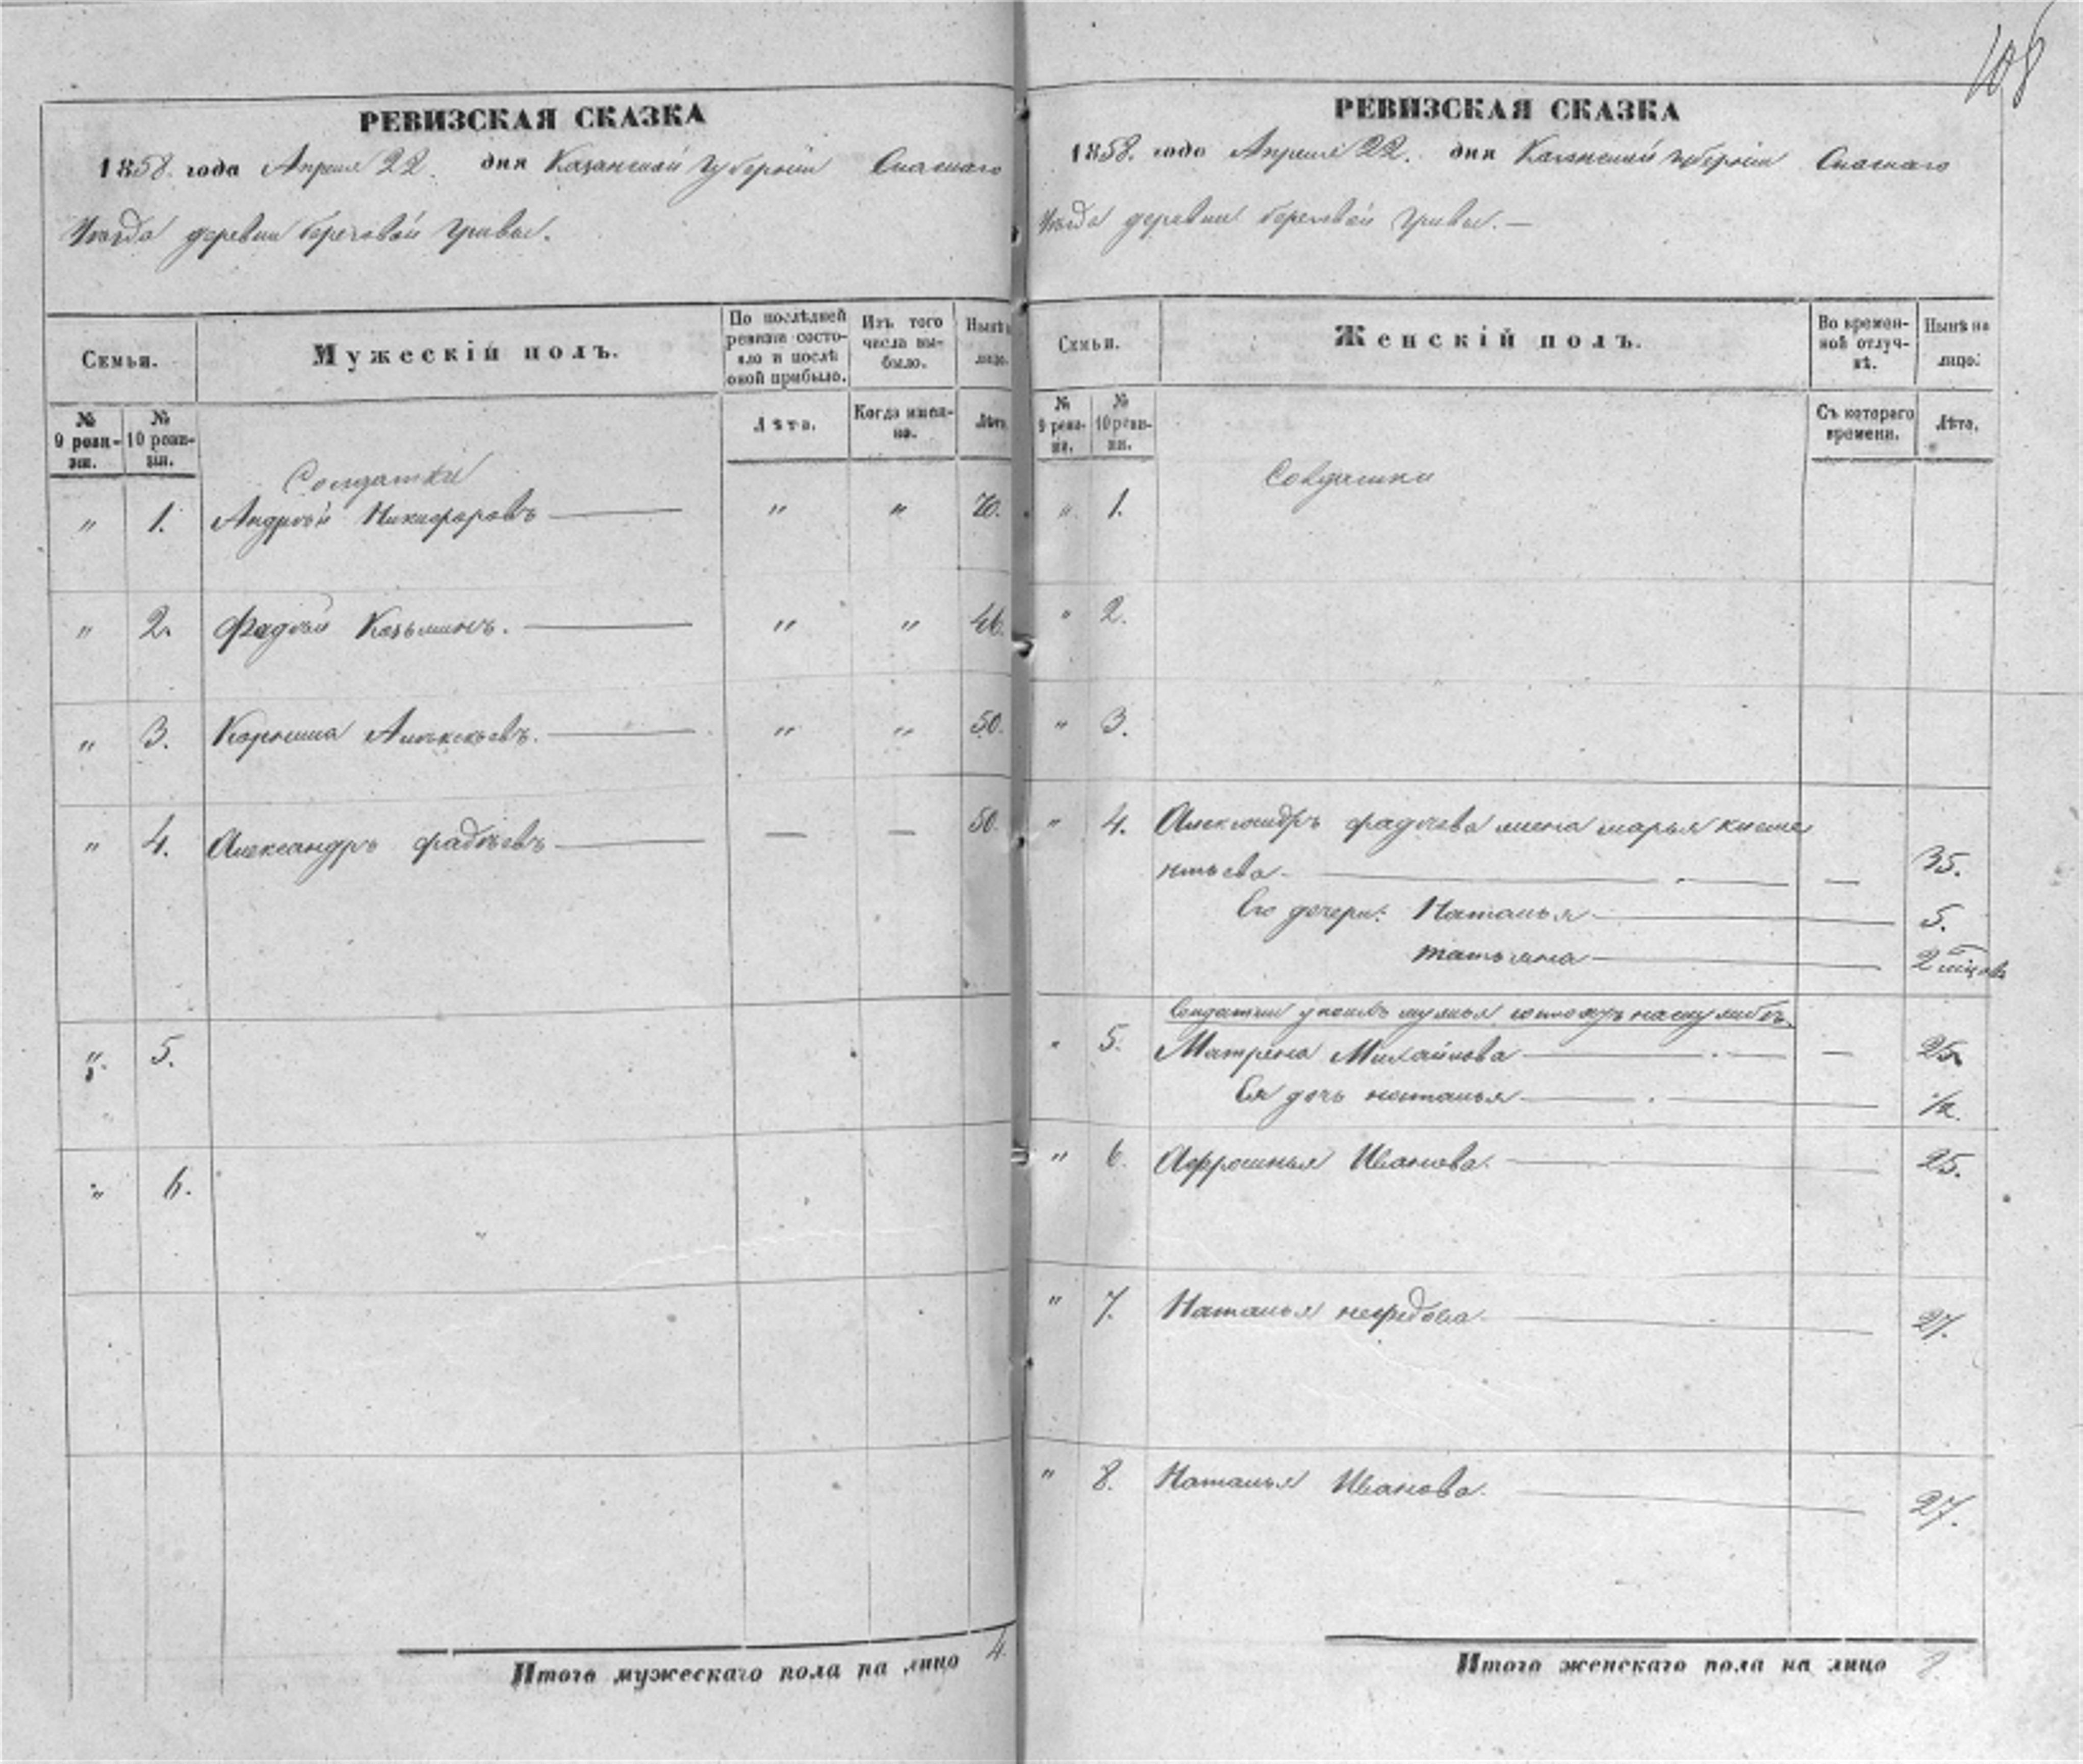 108
РЕВИЗСКАЯ СКАЗКА
1858. года Апреля 22. дня Казанской губернии Спасскаго
Уѣзда деревни береговой гривы.
Семьи.
Мужескій полъ.
По послѣдней ревизіи состояло и послѣ оной прибыло.
Изъ того числа выбыло.
Нынѣ на лицо.
№ 9 ревизіи.
№ 10 ревизіи.
Лѣта.
Когда именно.
Лѣта.
Солдатки
" 1. Андрей Никифоровъ — " " 70.
" 2. Фадѣй Козьминъ. — " " 46.
" 3. Алексѣевъ. — " " 50.
" 4. Александръ фадѣевъ — — — 50.
" 5.
" 6.
Итого мужескаго пола на лицо 4.
РЕВИЗСКАЯ СКАЗКА
1858. года Апреля 22. дня Казанской губернии Спасскаго
Уѣзда деревни береговой гривы. —
Семьи.
Женскій полъ.
Во временной отлучкѣ.
Нынѣ на лицо.
№ 9 ревизіи.
№ 10 ревизіи.
Съ котораго времени.
Лѣта.
Солдатки
" 1.
" 2.
" 3.
" 4. Александръ фадѣева жена марья климе
нтьева — — 35.
Его дочери: Наталья — 5.
татьяна — 2 мѣцовъ
Солдатки у коихъ мужья на службѣ.
" 5. Матрена Михайлова — — 25
Ея дочь наталья — 1/2.
" 6. Афросинья Иванова. — 25.
" 7. Наталья нефедова — 27.
" 8. Наталья Иванова. — 27.
Итого женскаго пола на лицо